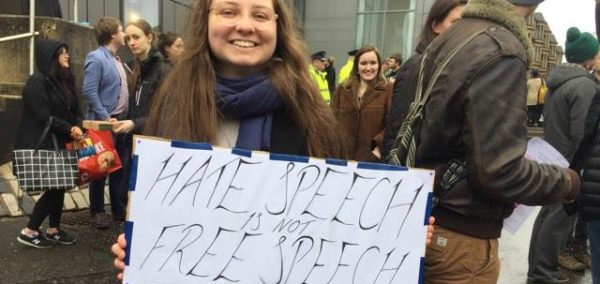 HATE SPEECH
IS NOT
FREE SPEECH